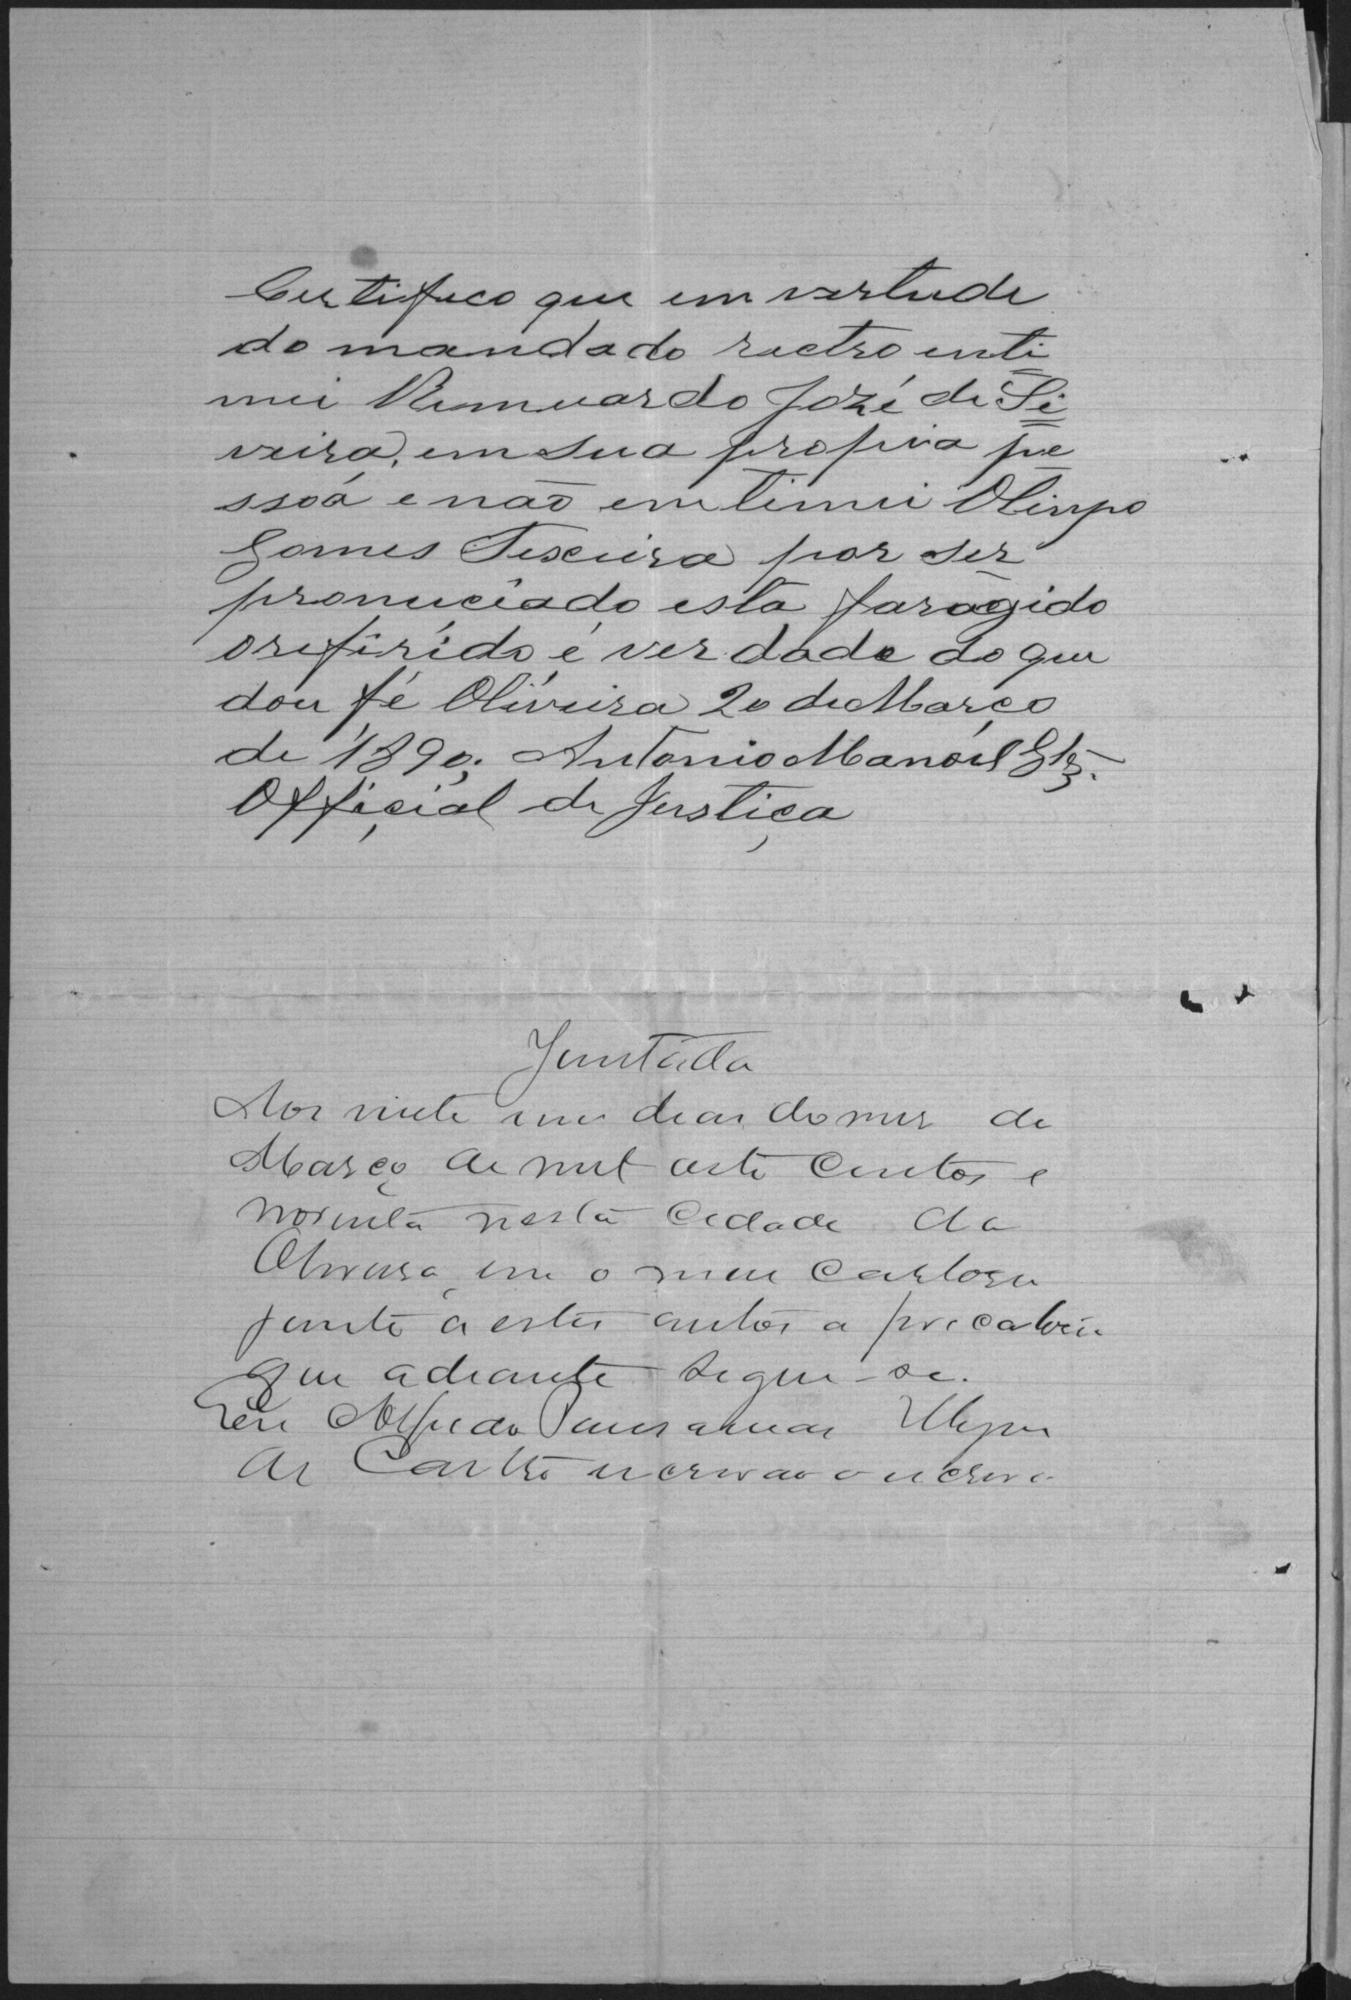 Certifico que em vertude
do mandado rectro enti
mei José de Si
veira, em sua propiva pe
ssoa e não emtimei Olimpo
Gomes Texeira por ser
pronuciado esta faragido
orefirido é verdade do que
dou fé Oliveira 20 de Março
de 1890. Antonio Manoel
Official de Justiça
Juntada
Aos vinte um dias do mes de
Março de mil oito centos e
noventa nesta Cidade da
Oliveira, em o meu Cartorio
junto a estes autos a precatoria
que adeante segue-se.
Eu Alfredo
de Castro escrivão o escrevi